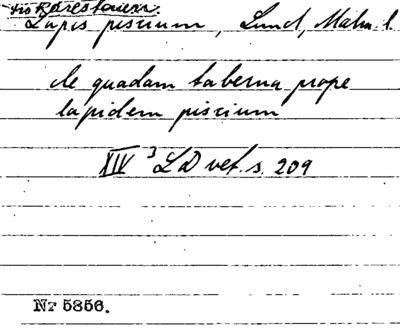 Lapis piscium, Lund, Malm. l.
de quadam taberna prope
lapidem piscium
XIV ³ LD vet. s. 209
Nr 5856.